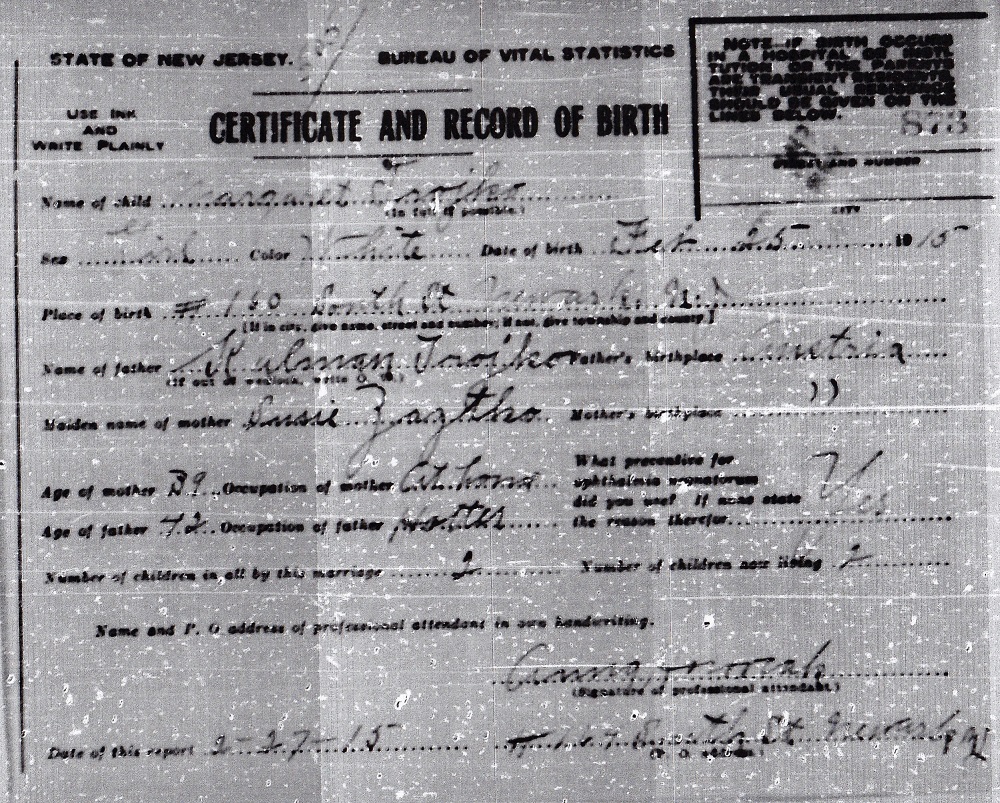 STATE OF NEW JERSEY. BUREAU OF VITAL STATISTICS
NOTE. IF BIRTH OCCURS
IN A HOSPITAL OR INSTI-
TUTION OR THE PARENTS
ARE TRANSIENT RESIDENTS,
THEIR USUAL RESIDENCE
SHOULD BE GIVEN ON THE
LINES BELOW.
873
STREET AND NUMBER
CITY
USE INK
AND
WRITE PLAINLY
CERTIFICATE AND RECORD OF BIRTH
Name of child Margaret Trojko
(In full if possible.)
Sex Girl Color White Date of birth Feb 25 1915
Place of birth # 160 South St Newark. N.J
[If in city, give name, street and number; if not, give township and county.]
Name of father Kulman Trojko Father's birthplace Austria
(If out of wedlock, write O. W.)
Maiden name of mother Susie Mother's birthplace ))
Age of mother 39 Occupation of mother At home
What preventive for
ophthalmia neonatorum
did you use? If none state
the reason therefor Yes
Age of father 42 Occupation of father
Number of children in all by this marriage 2 Number of children now living 2
Name and P. O address of professional attendant in own handwriting.
Anna
(Signature of professional attendant.)
Date of this report 2-27-15 South St Newark NJ
(P. O. address.)